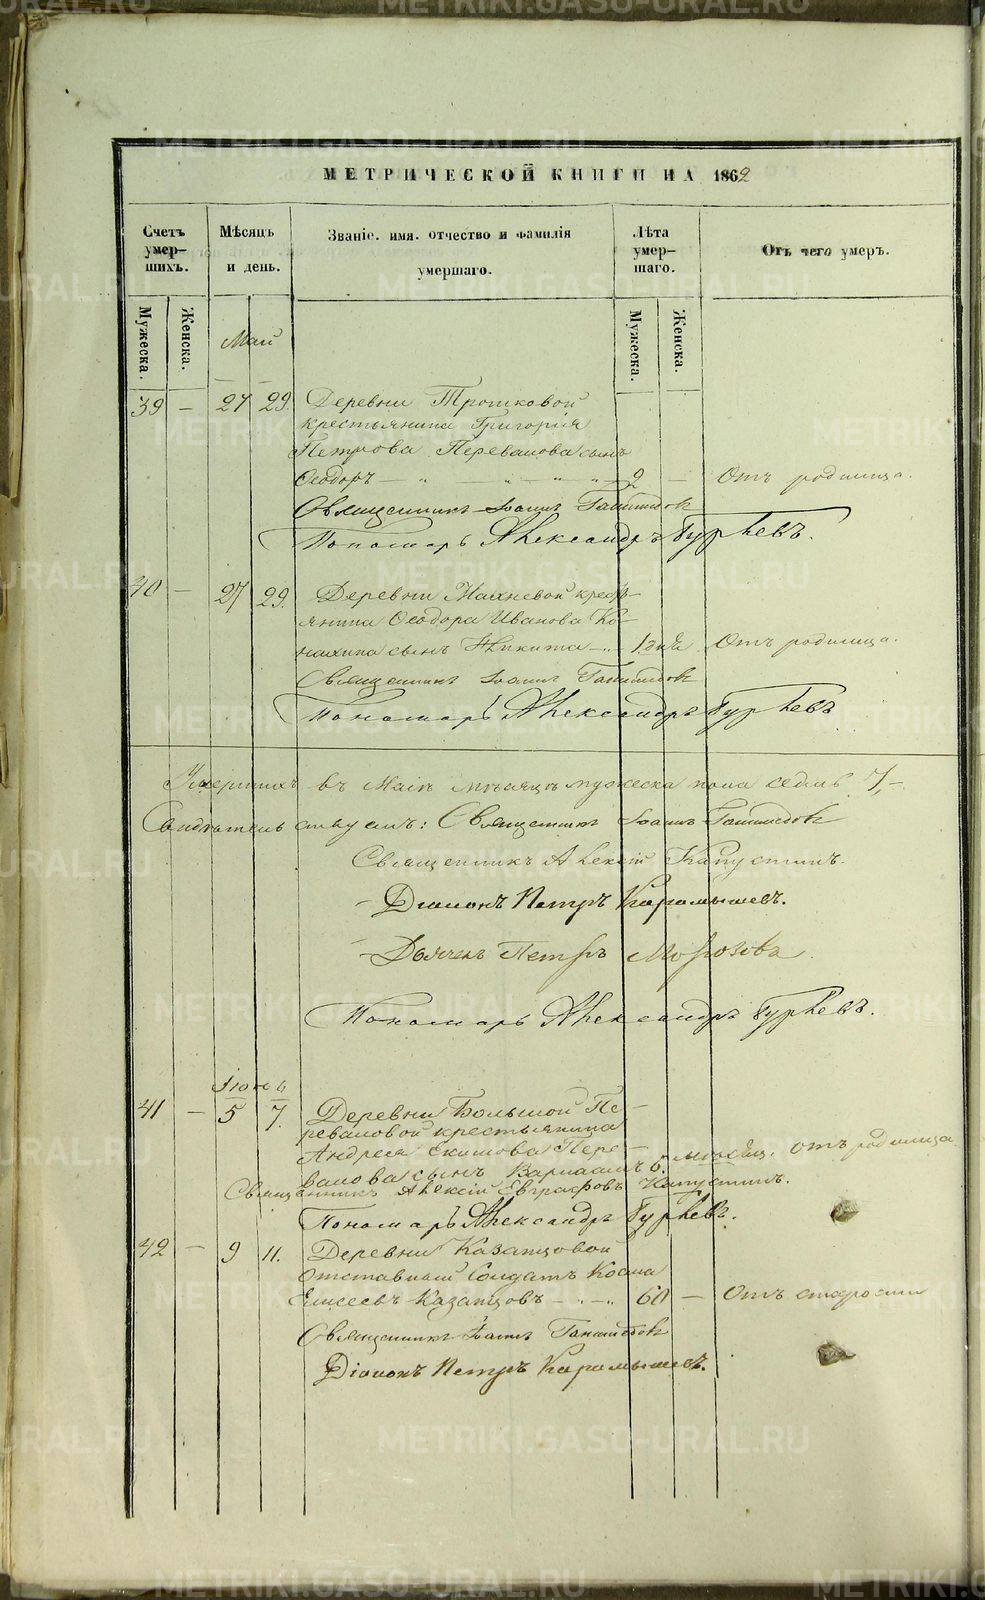 МЕТРИЧЕСКОЙ КНИГИ НА 1862
Счетъ умер-шихъ.
Мѣсяцъ и день.
Званіе. имя. отчество и фамилія умершаго.
Лѣта умер-шаго.
Отъ чего умеръ.
Мужеска.
Женска.
Мужеска.
Женска.
Май
39 — 27 29. Деревни Трошковой
крестьянина Григорія
Петрова Перевалова сынъ
Ѳеодоръ — 2 — Отъ родимца.
Священникъ Іоаннъ
Пономарь Александръ Гурьевъ.
40 — 27 29. Деревни Махневой кресть-
янина Ѳеодора Иванова Ко-
сынъ Никита — 1. дня Отъ родимца.
Священникъ Іоаннъ
Пономарь Александръ Гурьевъ
Умершихъ въ Маіѣ мѣсяцѣ мужеска пола седмь 7, —
Свидѣтельствуемъ: Священникъ Іоаннъ
Священникъ Алексій Капустинъ.
Діаконъ Петръ Карамышевъ.
Дьячекъ Петръ Морозовъ.
Пономарь Александръ Гурьевъ.
Іюня
41 — 5 7. Деревни Большой Пе-
реваловой крестьянина
Андрея Екимова Пере-
валова сынъ Варлаамъ 6. мѣсяц. отъ родимца
Священникъ Алексій Евграфовъ Капустинъ.
Пономарь Александръ Гурьевъ.
42 — 9 11. Деревни Казанцовой
Отставный Солдатъ Косма
Елисеевъ Казанцовъ — 60 — Отъ старости
Священникъ Іоаннъ
Діаконъ Петръ Карамышевъ.
METRIKI.GASO-URAL.RU